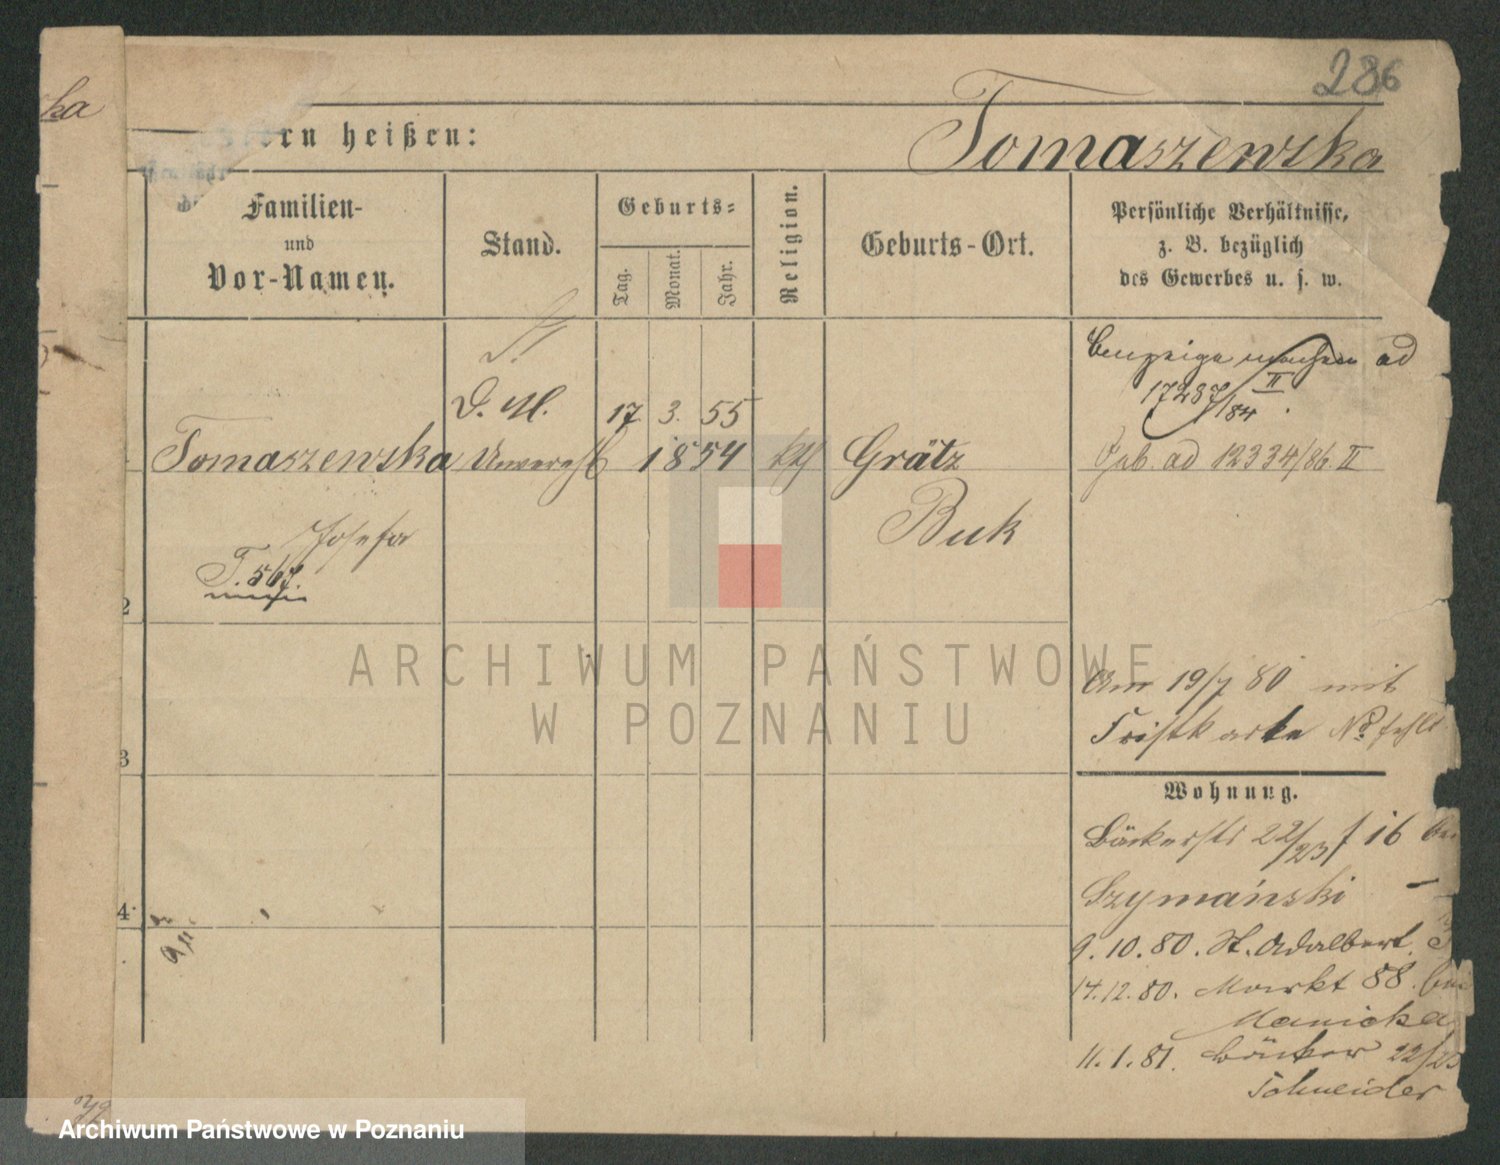 286
ka
ern heißen:
Tomaszewska
Familien-
und
Vor-Namen.
Stand.
Geburts-
Tag.
Monat.
Jahr.
Religion.
Geburts-Ort.
Persönliche Verhältnisse,
z. B. bezüglich
des Gewerbes u. s. w.
ad
17237/84 II
D. M. 17. 3. 55
Tomaszewska 1854 Grätz
ad 12334/86. II
Buk
Josefa
T. 567.
2
ARCHIWUM PAŃSTWOWE
W POZNANIU
Am 19/7 80 mit
No fehlt
3
Wohnung.
Bäckerstr 22/23 f 16
Szymański
4
9.10.80. St. Adalbert.
14.12.80. Markt 88.
Manicka
11.1.81. Bäcker 22/23
Schneider
Archiwum Państwowe w Poznaniu